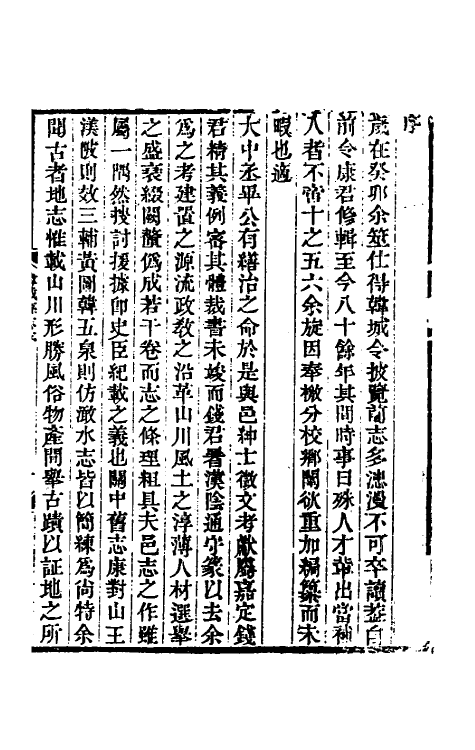 序
歲在癸卯余筮仕得韓城令披覽前志多漶漫不可卒讀蓋自
前令康君修輯至今八十餘年其間時事日殊人才輩出當補
入者不啻十之五六余旋因奉檄分校鄉闈欲重加編纂而未
暇也適
大中丞畢公有繕治之命於是與邑紳士徵文考獻屬嘉定錢
君精其義例審其體裁書未竣而錢君署漢陰通守篆以去余
為之考建置之源流政教之沿革山川風土之淳薄人材選舉
之盛衰綴闕釐偽成若干卷而志之條理粗具夫邑志之作雖
屬一隅然搜討援據即史臣紀載之義也關中舊志康對山王
渼陂則效三輔黃圖韓五泉則仿澉水志皆以簡練為尚特余
聞古者地志惟載山川形勝風俗物產間舉古蹟以証地之所